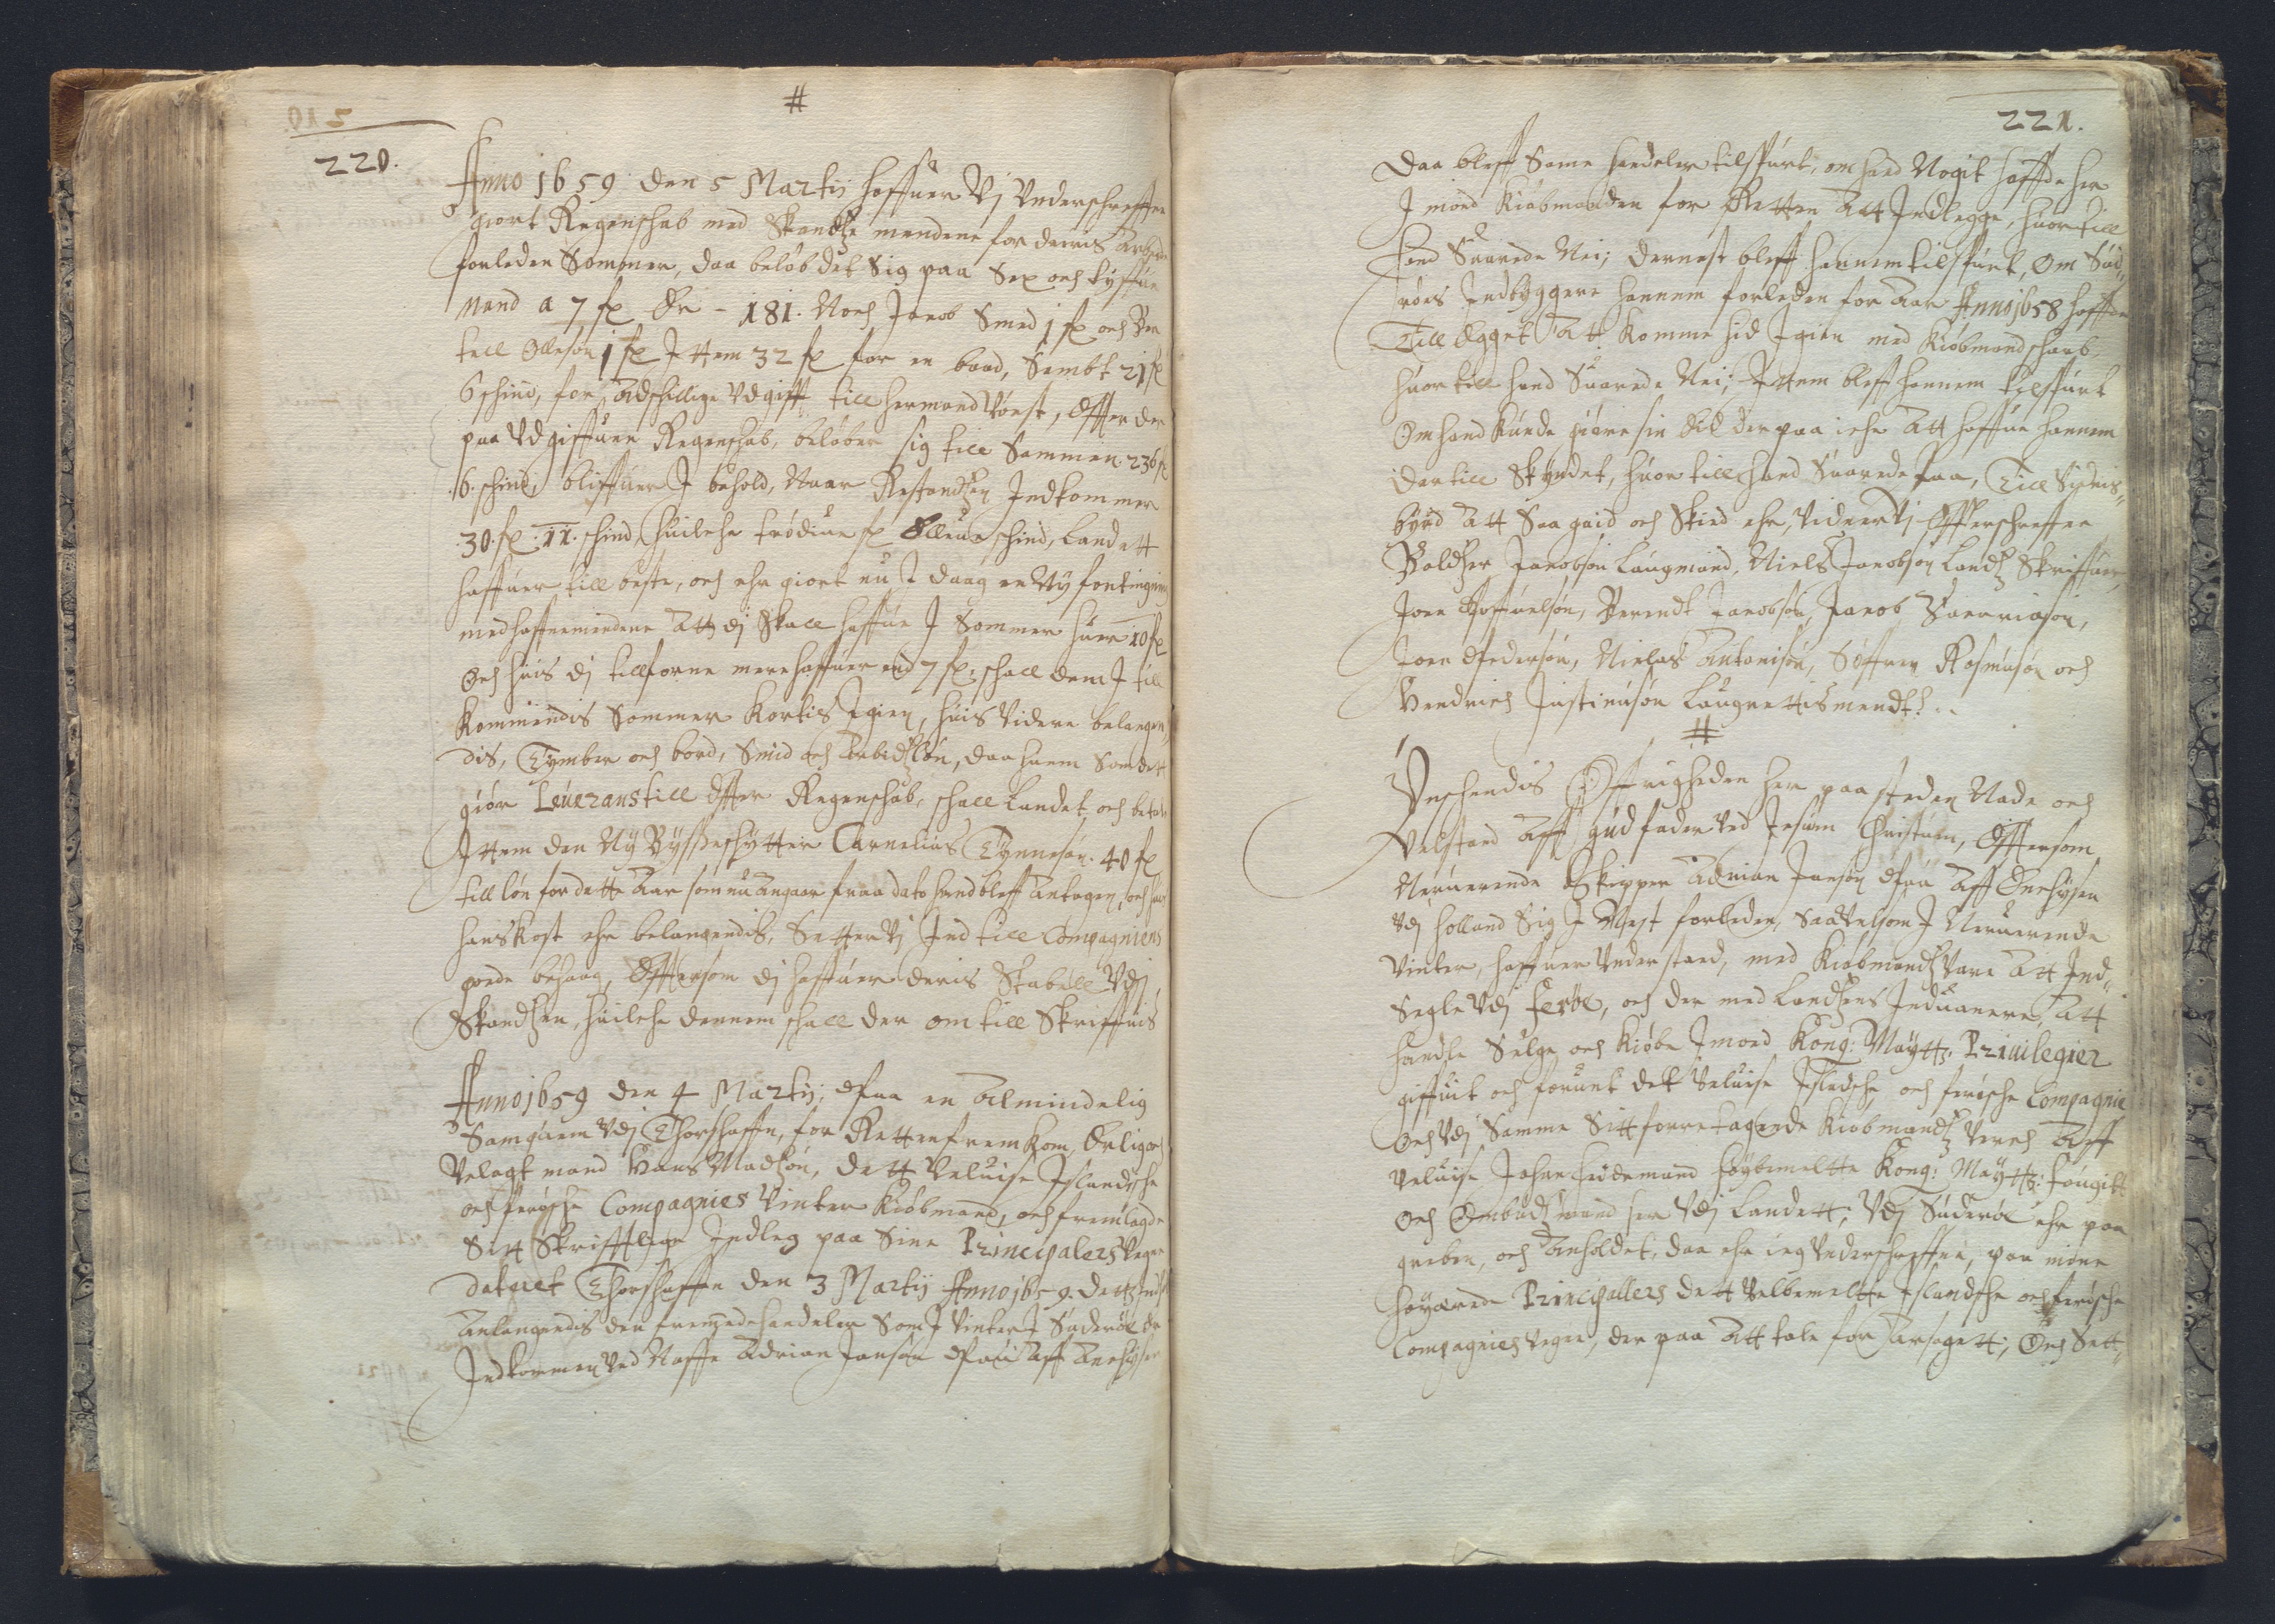 #
220.
Anno 1659 den 5 Martij haffuer Vj Vnderschreffne
giort Regenschab med Skandtze mendene for derris Arbeide
forleden Sommer, daa beløb det Sig paa Sex och tyffue
Mand a 7 sk Er - 181. Noch Jacob Smed 1 sk och Ber
tell Ollesøn 1 sk Jttem 32 sk for en baad, Sambt 21 sk
6 schind, for Adschillige Vdgifft till Hermand Vorst, Effter der
paa Vdgiffuen Regenschab, beløber sig till Sammen 236 sk
.6. schind, bliffuer J behold, Naar Restandtzen Jndkommer
.30. sk .11. schind, huilche trediue sk Elleue schind, Landett
haffuer till beste, och ehr giort nu J daag en Ny fortingning
med haffnemendene Att dj Skall haffue J Sommer huer 10 sk
Och huis dj tillforne mere haffuer end 7 sk. schall dem J till
Kommendis Sommer Kortis Jgien, huis Videre belangen,,
dis, Tymber och bord, Smid och Arbeidtzløn, daa huem Som dett
giør Leuerans till Effter Regenschab, schall Landet och betale
Jttem den Ny Bysseschytter Carnelius Tynnesøn. 40 sk
till løn for dette Aar som nu Angaar fraa dato hand bleff Antagen, och huad
hans Kost ehr belangendis, Setter Vj Jnd till Compagniens
goede behaag, Effttersom dj haffuer deris Stabell Vdj
Skandtzen, huilche dennem schall der om till Skriffuis
Anno 1659 den 4 Martij; Paa en Almindelig
Samquem Vdj Thorshaffn, for Retten fremkom, Erlig och
Velagt mand Hans Madtzøn, dett Veluise Jslandsche
och ferøsche Compagnies Vinter Kiøbmand, och fremlagde
Sitt Skrifftlige Jndleg paa Sine Principalers Vegne
dateret Thorshaffn den 3 Martij Anno 1659. dets Jndhold
Anlangendis den fremmede handeler Som J Vinter J Suderøe er
Jndkommen Ved Naffn Adrian Jansøn Paaw Aff Anchysen
221.
Daa bleff Same handeler tilspurt, om hand Nogit haffde her
J moed Kiøbmanden for Retten Att Jndlegge, huor till
hand Suarede Nei; dernest bleff hannem tilspurt, Om Sud,,
røes Jndbyggere hannem forleden for Aar Anno 1658 haffde
Till Egget Att Komme hid Jgien med Kiøbmandschaab
huor till hand Suarede Nei; Jttem bleff hannem tilspurt
Om hand Kunde giøre sin Eid der paa iche Att haffue hannem
der till Skyndet, huor till hand Suarede Jaa, Till Vidnis,,
byrd Att Saa gaid och Skied ehr, Vidner Vj Effterschreffne
Baldtzer Jacobsøn Laugmand, Niels Jacobsøn Landtz Skriffuer,
Joen Poffuelsøn, Berendt Jacobsøn, Jacob Sacariasøn,
Joen Pedersøn, Niclas Antonisøn, Søffren Rasmusøn och
Hendrich Justinusøn Laugrettismendt.
#
Ynschendis Øffrigheden her paa steden Naade och
Velstand Aff Gud fader Ved Jesum Christum, Effttersom
Neruerende Skipper Adrian Jansøn Paaw Aff Enchysen
Vdj Holland Sig J Høst forleden, Saa Velsom J Neruerende
Vinter, haffuer Vnderstaed, med Kiøbmandtz Vare Att Jnd,,
Segle Vdj ferøe, och der med Landtzens Jnduanere, Att
handle Selge och Kiøbe Jmoed Kong: Maytts. Priuilegier
giffuit och forunt det Veluise Jslandsche och ferøsche Compagnie
Och Vdj Samme Sitt forretagende Kiøbmandtz Verch Aff
Veluise Johan Heidemand høybemeltte Kong: Maytts: fougitt
Och Ombudtzmand her Vdj Landett, Vdj Suderøe ehr paa
greben, och Anholdet, daa ehr ieg Vnderschreffne, paa mine
Høyærede Principallers dett Velbemeltte Jslandsche och ferøsche
Compagnies Vegne, der paa Att tale for Aarsagett; Och Sett,,